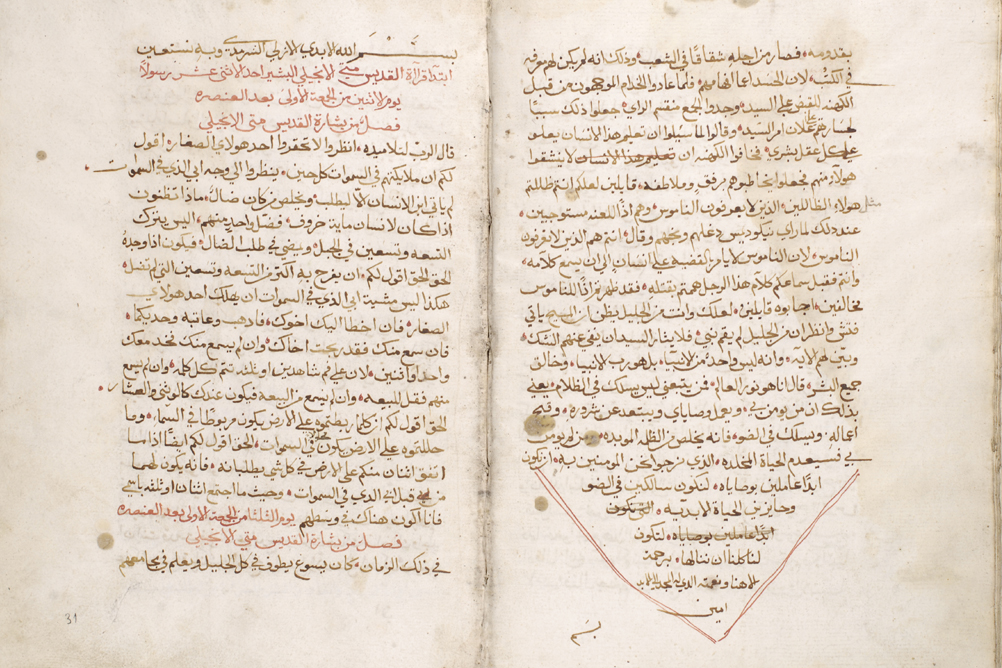 بقدومه فصار من اجله شقاقًا في الشعب وذلك انه لم يكن لهم معرفه
في الكتب لان الحسد اعما الهامهم فلما عادوا الخدام الموجهون من قبل
الكهنه للقبض على السيد وجدوا الجمع منقسم الراي جعلوا ذلك سببًا
وقالوا ما سيلوا ان تعليم هذا الانسان يعلو
على كل عقل بشري فخافوا الكهنه ان تعليم هذا الانسان لا ينشقوا
هولاء منهم فجعلوا يخاطبوهم برفق وملاطفه قايلين لعلكم انتم ظللتم
مثل هولاء الظالين الذين لا يعرفون الناموس وهم اذًا اللعنه مستوجبين
عند ذلك لما راى نيكوديمس دغلهم وقال انتم هم الذين لا تعرفون
الناموس لان الناموس لا يامر بالقضيه على انسان الى ان يسمع كلامه
وانتم فقبل سماعكم كلام هذا الرجل هممتم بقتله فقد ظهرتم اذًا للناموس
مخالفين اجابوه قايلين لعلك وانت من الجليل تظن ان المسيح ياتي
فتش وانظر ان من الجليل لم يقم نبي فلما شا السيد ان ينفي عنهم الشك
ويبين لهم لاته وانه ليس واحد من الانبيا بل هو رب الانبيا وخالق
جميع البشر قال انا هو نور العالم فمن يتبعني ليس يسلك في الظلام يعني
بذلك ان من يومن بي ويعمل وصاياي ويبتعد عن شروره وقبح
اعماله ويسلك في الضو فانه يخلص من الظلمه الموبده ومن لم يومن
بي فسيعدم الحياة المخلده الذي نرجو نحن المومنين به ان نكون
ابدًا عاملين بوصاياه لنكون سالكين في الضو
وحايزين الحياة الابديه لكي نكون
ابدًا عاملين بوصاياه لنكون
لنا كلنا ان ننالها برحمة
الاهنا ونعمته الذي له المجد الى الابد
امين
بسم
بسم الله الابدي الازلي السرمدي وبه نستعين
ابتدا قراة القديس متي الانجيلي البشير احد الاثني عشر رسولًا
يوم الاثنين من الجمعة الاولى بعد العنصره
فصل من بشارة القديس متى الانجيلي
قال الرب لتلاميذه انظروا لا تحقروا احد هولاي الصغار اقول
لكم ان ملايكتهم في السموات كل حين ينظروا الى وجه ابي الذي في السموات
لم ياتي ابن الانسان الا ليطلب ويخلص من كان ضالًا ماذا تظنون
اذا كان لانسان ماية خروف فضل واحد منهم اليس يترك
التسعه وتسعين في الجبل ويمضي في طلب الضال فيكون اذا وجده
الحق الحق اقول لكم ان يفرح به اكثر من التسعه وتسعين التي لم تضل
هكذا ليس مشية ابي الذي في السموات ان يهلك احد هولاي
الصغار فان اخطا اليك اخوك فاذهب وعاتبه وحديكما
فان سمع منك فقد ربحت اخاك وان لم يسمع منك فخد معك
واحد او اثنين لان على فم شاهدين او ثلثه تتم كل كلمه وان لم يسمع
منهم فقل للبيعه وان لم يسمع من البيعه فيكون عندك كالوثني والعشار
الحق اقول لكم ان كلما ربطتموه على الارض يكون مربوطًا في السما وما
حللتوه على الارض يكون محلولًا في السموات الحق اقول لكم ايضًا اذا ما
اتفق اثنان منكم على الارض في كل شي يطلبانه فانه يكون لهما
من قبل ابي الذي في السموات وحيث ما اجتمع اثنان او ثلثه باسمي
فانا اكون هناك في وسطهم يوم الثلثا من الجمعة الاولى بعد العنصره
فصل من بشارة القديس متي الانجيلي
في ذلك الزمان كان يسوع يطوف في كل الجليل ويعلم في مجامعهم
31